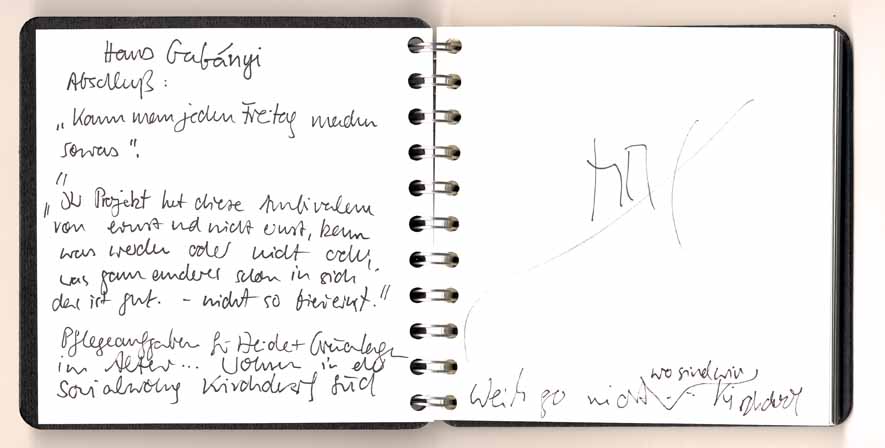 Hans Gabányi
Abschluß:
„Kann man jeden Freitag machen
sowas".
"
„Ihr Projekt hat diese Ambivalenz
von ernst und nicht ernst, kann
was werden oder nicht oder
was ganz anderes schon in sich,
das ist gut. – nicht so bierernst."
Pflegeaufgaben für Heide +
im Alter... Wohnen in der
Sozialwohng Kirchdorf Süd
wo sind wir
nicht Kirchdorf